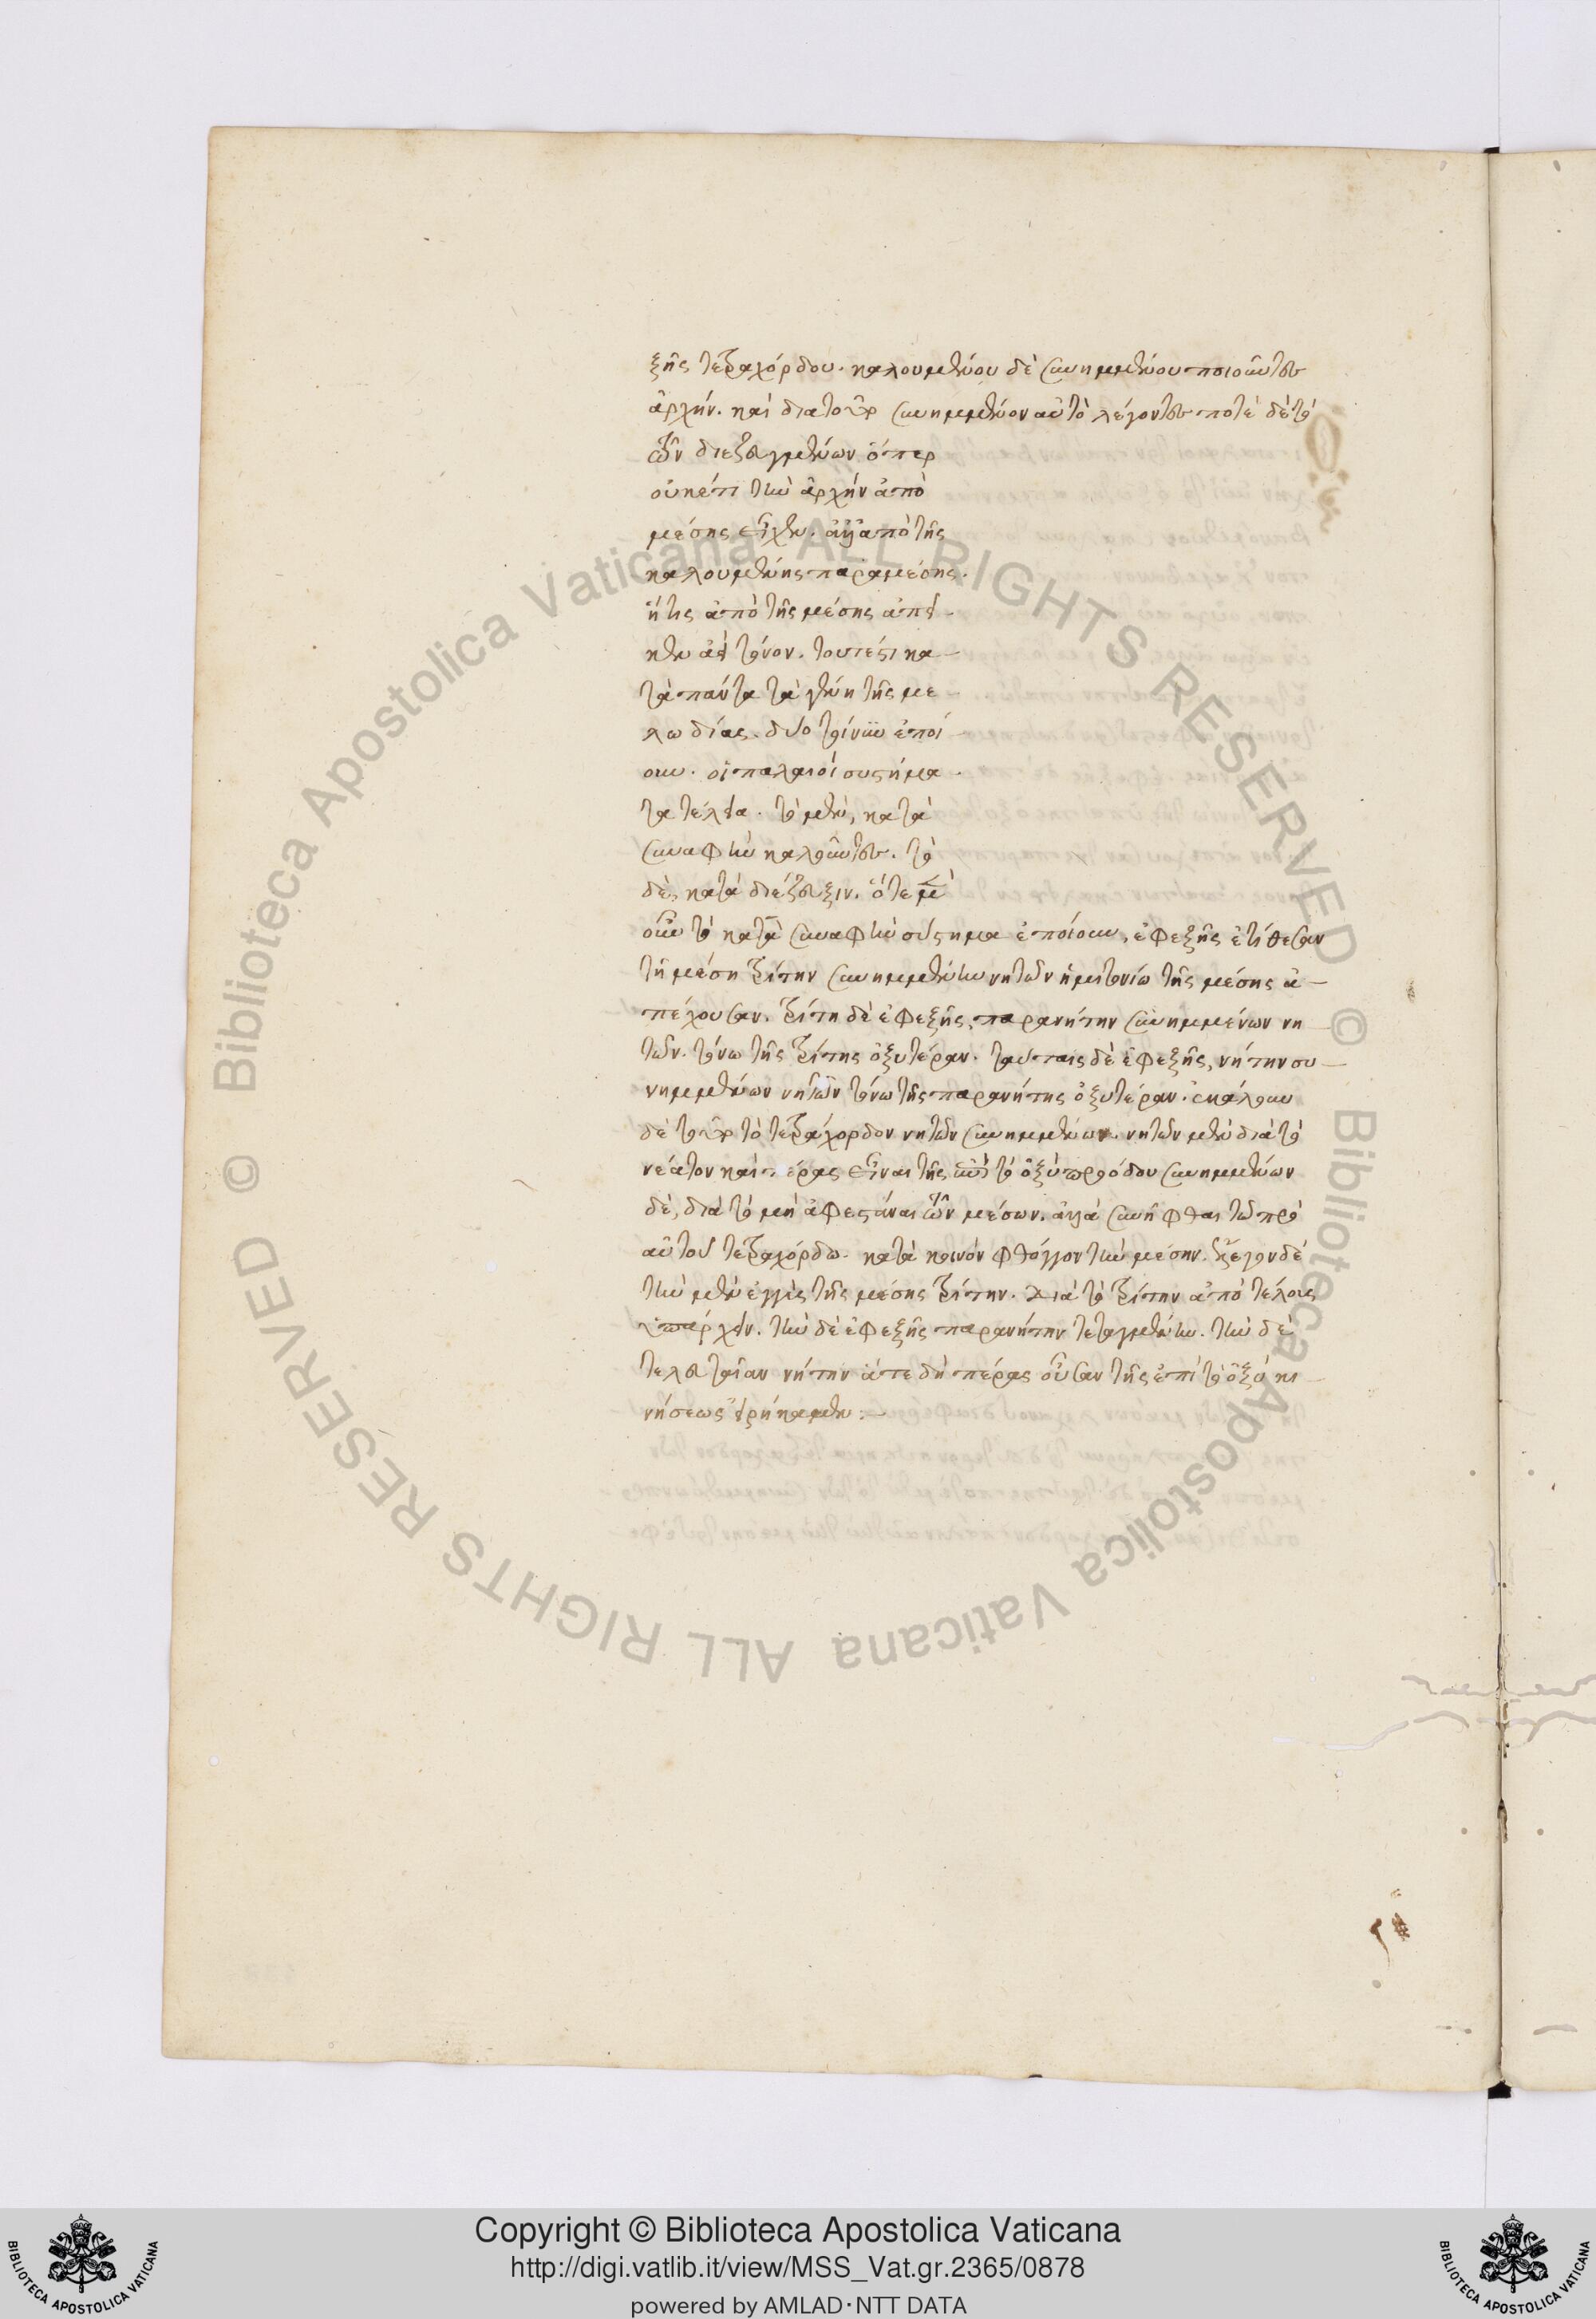 ξῆς τετραχόρδου. καλουμένου δὲ συνημμένου ποιοῦνται
ἀρχήν. καὶ διατοῦτο συνημμένον αὐτὸ λέγονται ποτὲ δὲ τὸ
τῶν διεζευγμένων ὅπερ
οὐκέτι τὴν ἀρχὴν ἀπὸ
μέσης εἶχεν. ἀλλ' ἀπὸ τῆς
καλουμένης παραμέσης.
ἥτις ἀπὸ τῆς μέσης ἀπεί-
κεν ἀεὶ τόνον. τουτέστι κα-
τὰ πάντα τὰ γένη τῆς με-
λωδίας. δύο τοίνυν ἐποί-
ουν. οἱ παλαιοὶ συστήμα-
τα τέλεια. τὸ μὲν, κατὰ
συναφὴν καλοῦνται. τὸ
δὲ, κατὰ διέζευξιν. ὅτε μὲν
οὖν τὸ κατὰ συναφὴν σύστημα ἐποίουν, ἐφεξῆς ἐτίθεσαν
τῇ μέση τρίτην συνημμένην νητῶν ἡμιτονίω τῆς μέσης ἀ-
πέχουσαν. τρίτη δὲ ἐφεξῆς, παρανήτην συνημμένων νη-
τῶν. τόνω τῆς τρίτης ὀξυτέραν. ταύταις δὲ ἐφεξῆς, νήτην συ-
νημμένων νητῶν τόνω τῆς παρανήτης ὀξυτέραν. ἐκάλουν
δὲ τοῦτο τὸ τετράχορδον νητῶν συνημμένων. νητῶν μὲν διὰ τὸ
νέατον καὶ πέρας εἶναι τῆς ἐπὶ τὸ ὀξὺ προόδου συνημμένων
δὲ, διὰ τὸ μὴ ἀφεστάναι τῶν μέσων. ἀλλὰ συνῆφθαι τῶ πρὸ
αὐτοῦ τετραχόρδω. κατὰ κοινὸν φθόγγον τὴν μέσην. ἔλεγον δὲ
τὴν μὲν ἐγγὺς τῆς μέσης τρίτην. διὰ τὸ τρίτην ἀπὸ τέλους
ὑπάρχειν. τὴν δὲ ἐφεξῆς παρανήτην τεταγμένην. τὴν δὲ
τελευταίαν νήτην ἅτε δὴ πέρας οὖσαν τῆς ἐπὶ τὸ ὀξὺ κι-
νήσεως εἰρήκαμεν:—
Copyright © Biblioteca Apostolica Vaticana
http://digi.vatlib.it/view/MSS_Vat.gr.2365/0878
powered by AMLAD·NTT DATA
BIBLIOTECA APOSTOLICA VATICANA
BIBLIOTECA APOSTOLICA VATICANA
© Biblioteca Apostolica Vaticana ALL RIGHTS RESERVED
© Biblioteca Apostolica Vaticana ALL RIGHTS RESERVED